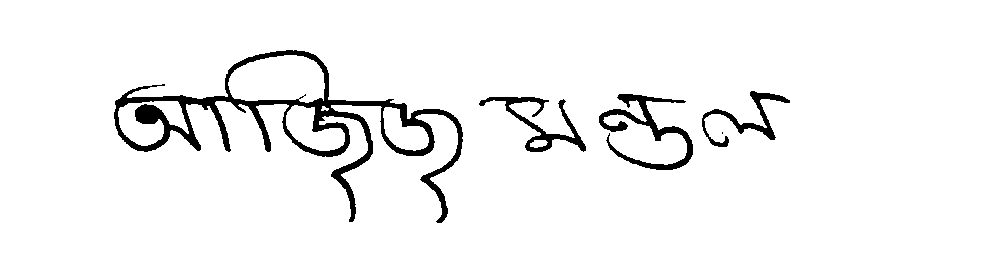 আজিজ মন্ডল